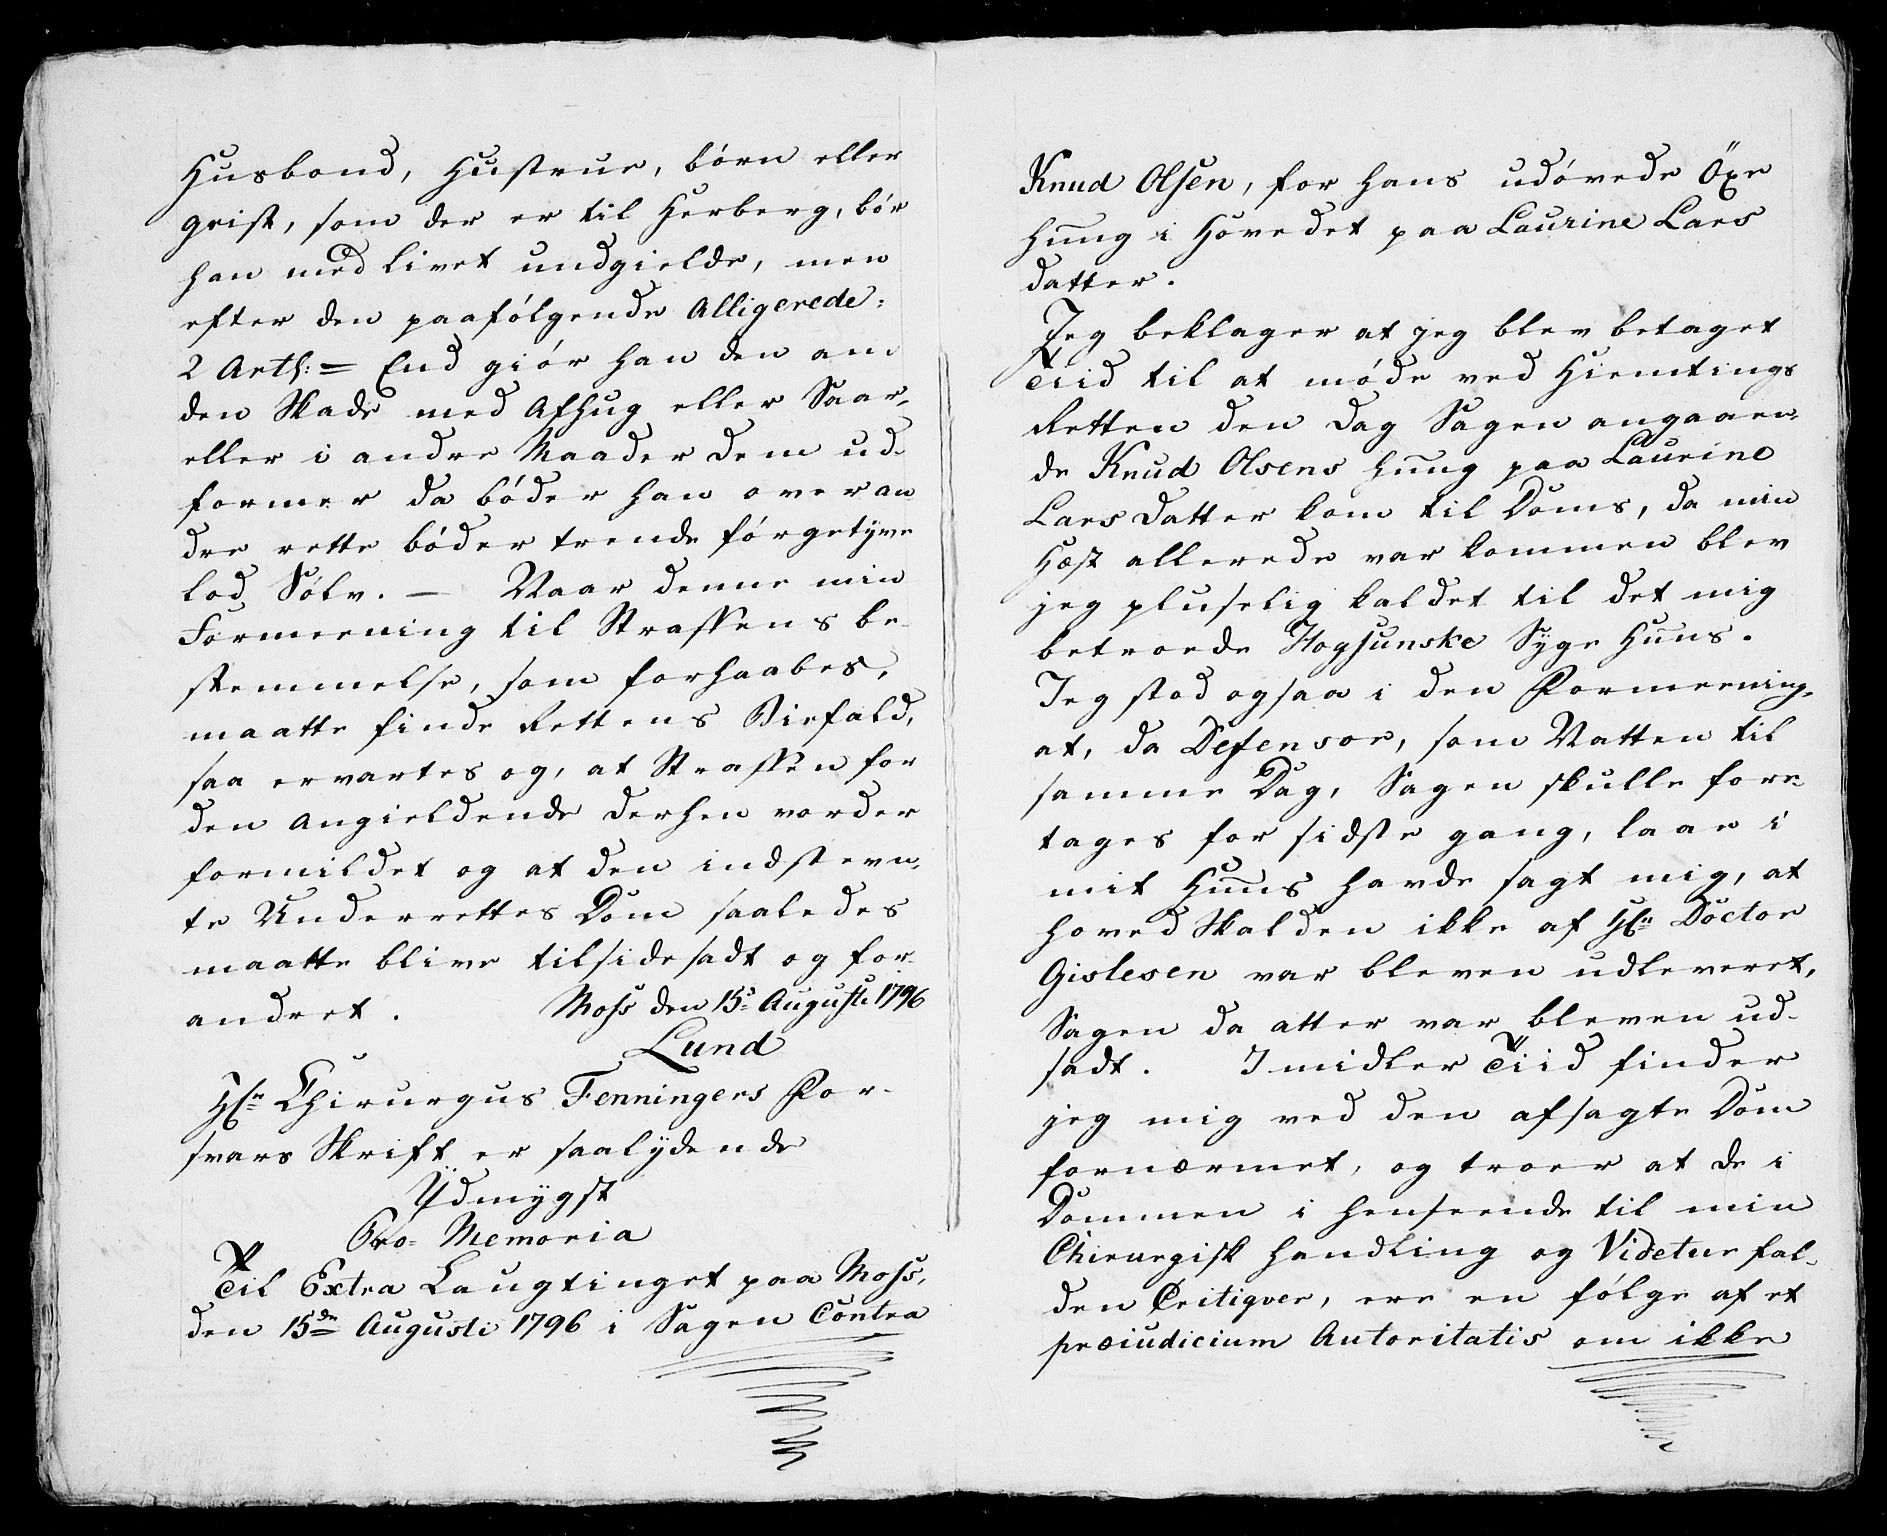 Husbond, Hustrue, börn eller
geist, som der er til Herberg, bör
han med livet undgielde, men
efter den paafölgende Alligerede
2 Arth: = End giör han den an
den Skade med Afhug eller Saar,
eller i andre Maader dem ud-
former da böder han over an
dre rette böder trende förgetyve
lod Sölv. — Naar denne min
Formeening til Straffens be-
stemmelse, som forhaabes,
maatte finde Rettens Biefald,
saa ervartes og, at Straffen for
den angieldende derhen vorder
formildet og at den indstevn-
te Underrettes Dom saaledes
maatte blive tilsidesadt og for-
andret. Moss den 15de Augusti 1796
Lund
Hr Chirurgus Fenningers For-
svars Skrift er saalydende
Ydmygst
Pro-Memoria
Til Extra Laugtinget paa Moss,
den 15de Augusti 1796 i Sagen Contra
Knud Olsen, for hans udövede Öxe
hung i Hovedet paa Laurine Lars
datter.
Jeg beklager at jeg blev betaget
Tiid til at möde ved Hiemtings
Retten den Dag Sagen angaaen
de Knud Olsens hung paa Laurine
Lars Datter kom til Doms, da min
Hæst allerede var kommen blev
jeg pluselig kaldet til det mig
betroede Hogsunske Syge Huus.
Jeg stod ogsaa i den Formeening,
at, da Defensor, som Natten til
samme Dag, Sagen skulle fore-
tages for sidste gang, laae i
mit Huus havde sagt mig, at
hoved Skalden ikke af Hr Doctor
Gislesen var bleven udleveret,
Sagen da atter var bleven ud-
sadt. Imidler Tiid finder
jeg mig ved den afsagte Dom
fornærmet, og troer at de i
Dommen i henseende til min
Chirurgisk handling og Videtur fal-
den Critiqver, ere en fölge af et
præiudicium Autoritatis om ikke